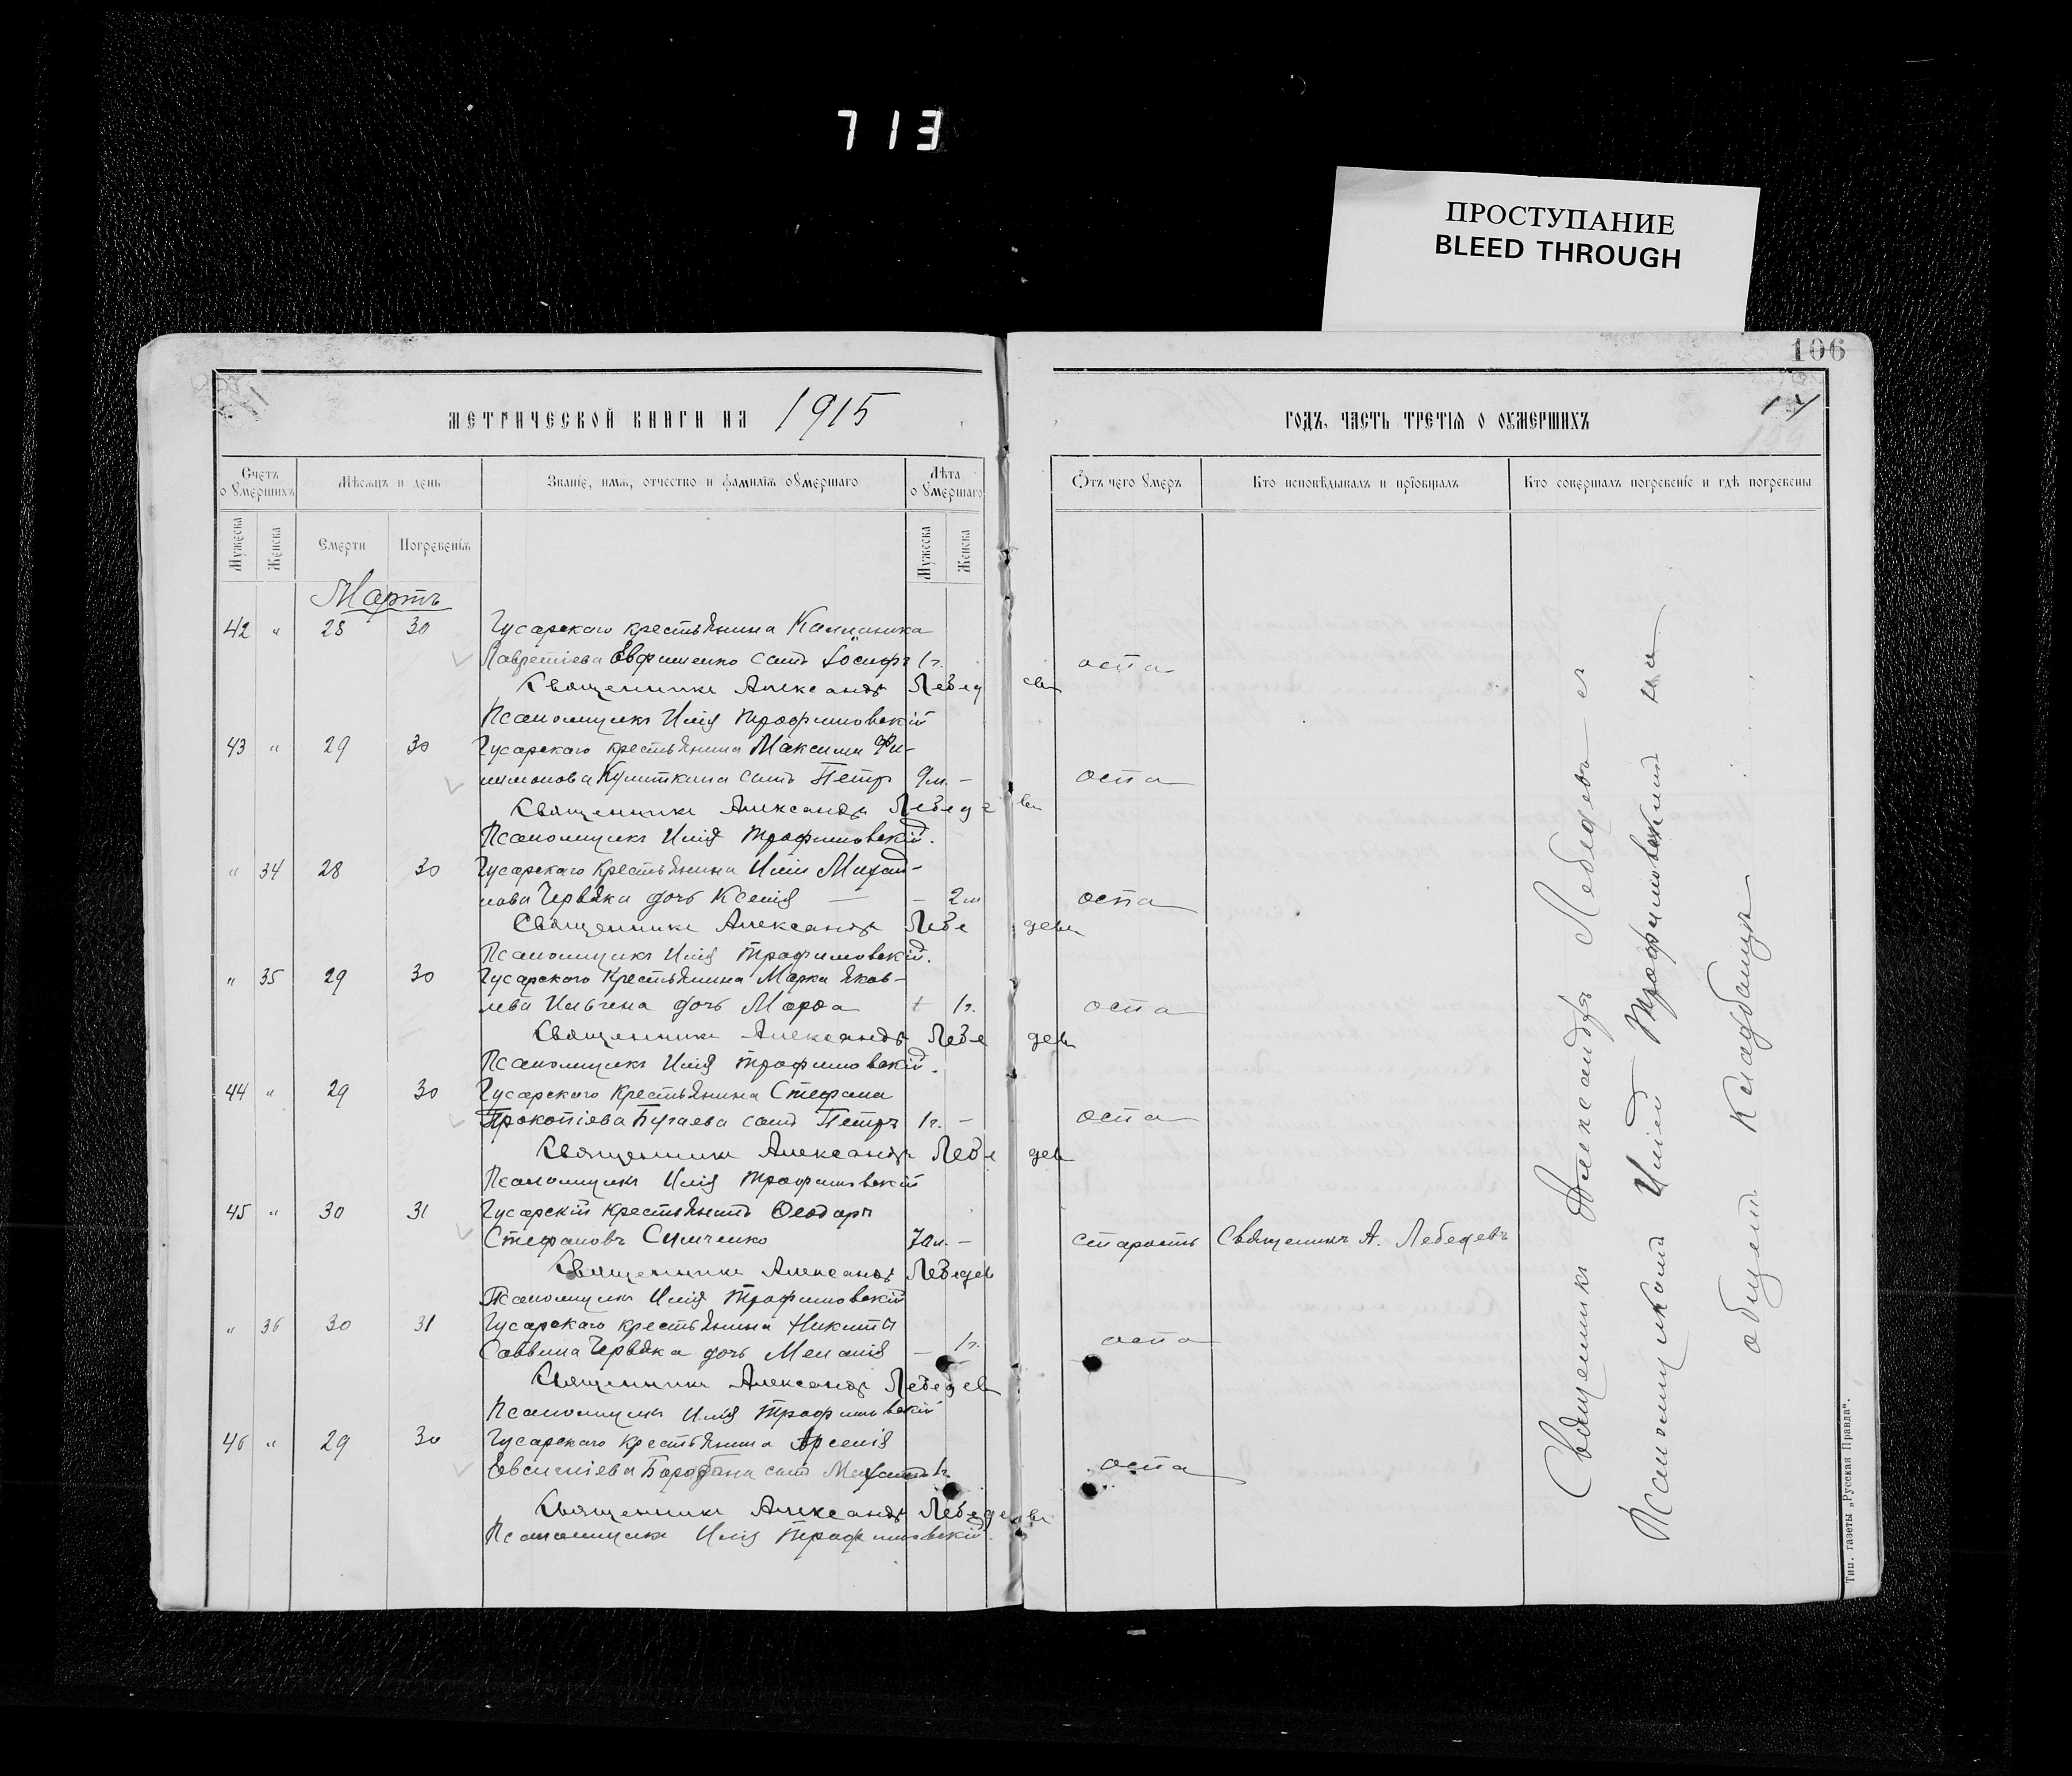 713
ПРОСТУПАНИЕ
BLEED THROUGH
106
17
МЕТРИЧЕСКОЙ КНИГИ НА 1915
ГОДЪ, ЧАСТЬ ТРЕТІЯ О ОУМЕРШИХЪ
Счетъ оумершихъ
Мѣсяцъ и день
Званіе, имя, отчество и фамилія оумершаго
Лѣта оумершаго
Отъ чего умеръ
Кто исповѣдывалъ и пріобщалъ
Кто совершалъ погребеніе и гдѣ погребены
Мужеска Женска Смерти Погребенія Мужеска Женска
Мартъ
42 " 28 30 Гусарскаго крестьянина
Лаврентіева Евфименко сынъ Іосифъ 1 г. оспа
Священникъ Александръ Лебедевъ
Псаломщикъ Илія Трофимовскій
43 " 29 30 Гусарскаго крестьянина Максима Фи-
лимонова сынъ Петръ 9 м. – оспа
Священникъ Александръ Лебедевъ
Псаломщикъ Илія Трофимовскій.
" 34 28 30 Гусарскаго крестьянина Иліи Михай-
лова Червяка дочь Ксенія – – 2 м оспа
Священникъ Александръ Лебедевъ
Псаломщикъ Илія Трофимовскій.
" 35 29 30 Гусарскаго крестьянина Марка Яков-
лева Ильчена дочь Марѳа 1 г. оспа
Священникъ Александръ Лебедевъ
Псаломщикъ Илія Трофимовскій.
44 " 29 30 Гусарскаго крестьянина Стефана
Прокопіева Бугаева сынъ Петръ 1 г. – оспа
Священникъ Александръ Лебедевъ
Псаломщикъ Илія Трофимовскій
45 " 30 31 Гусарскій крестьянинъ Ѳеодоръ
Стефановъ Сумченко 70 л. – старость Священникъ А. Лебедевъ
Священникъ Александръ Лебедевъ
Псаломщикъ Илія Трофимовскій
" 36 30 31 Гусарскаго крестьянина Никиты
Саввина Червяка дочь Меланія – 1 г. оспа
Священникъ Александръ Лебедевъ
Псаломщикъ Илія Трофимовскій
46 " 29 30 Гусарскаго крестьянина Арсенія
сынъ Михаилъ 1 г. оспа
Священникъ Александръ Лебедевъ
Псаломщикъ Илія Трофимовскій.
Священникъ Александръ Лебедевъ съ
Псаломщикомъ Иліей Трофимовскимъ на
общемъ кладбищѣ
Тип. газеты „Русская Правда“.